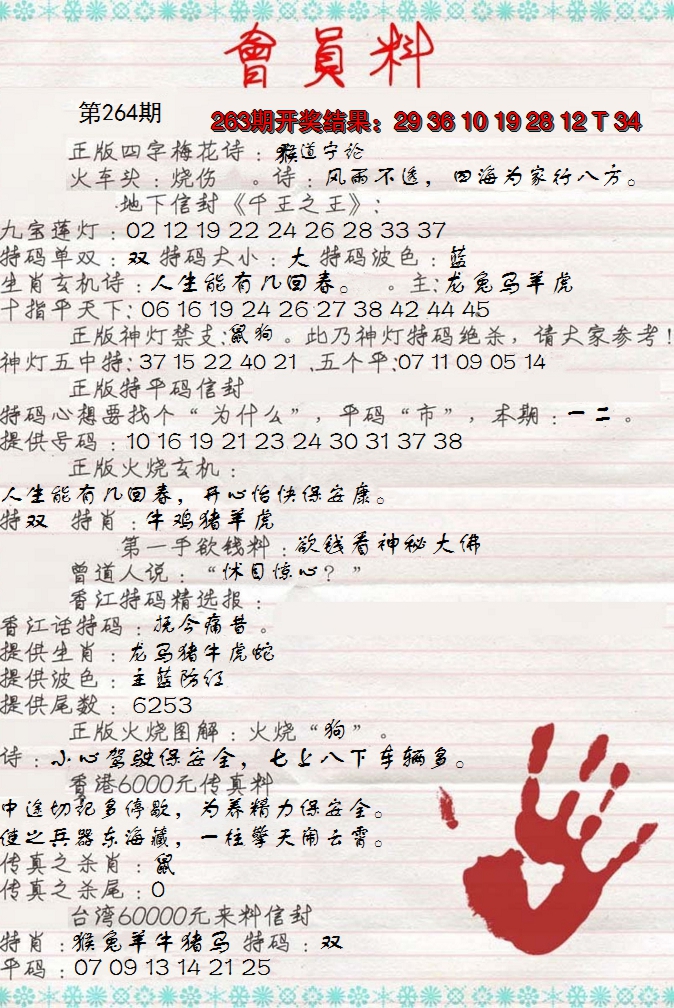 會員料
第264期
263期开奖结果：29 36 10 19 28 12 T 34
正版四字梅花诗：猴道宁论
火车头：烧伤 。诗：风雨不透，四海为家行八方。
地下信封《千王之王》：
九宝莲灯：02 12 19 22 24 26 28 33 37
特码单双：双 特码大小：大 特码波色：蓝
生肖玄机诗：人生能有几回春。 。主：龙兔马羊虎
十指平天下：06 16 19 24 26 27 38 42 44 45
正版神灯禁支：鼠狗。此乃神灯特码绝杀，请大家参考！
神灯五中特：37 15 22 40 21 .五个平：07 11 09 05 14
正版特平码信封
特码心想要找个“为什么”，平码“市”，本期：一二。
提供号码：10 16 19 21 23 24 30 31 37 38
正版火烧玄机：
人生能有几回春，开心怡快保安康。
特双 特肖：牛鸡猪羊虎
第一手欲钱料：欲钱看神秘大佛
曾道人说：“怵目惊心？”
香江特码精选报：
香江话特码：抚今痛昔。
提供生肖：龙马猪牛虎蛇
提供波色：主蓝防红
提供尾数：6253
正版火烧图解：火烧“狗”。
诗：小心驾驶保安全，七上八下车辆多。
香港6000元传真料
中途切记多停歇，为养精力保安全。
使之兵器东海藏，一柱擎天闹云霄。
传真之杀肖：鼠
传真之杀尾：0
台湾60000元来料信封
特肖：猴兔羊牛猪马 特码：双
平码：07 09 13 14 21 25